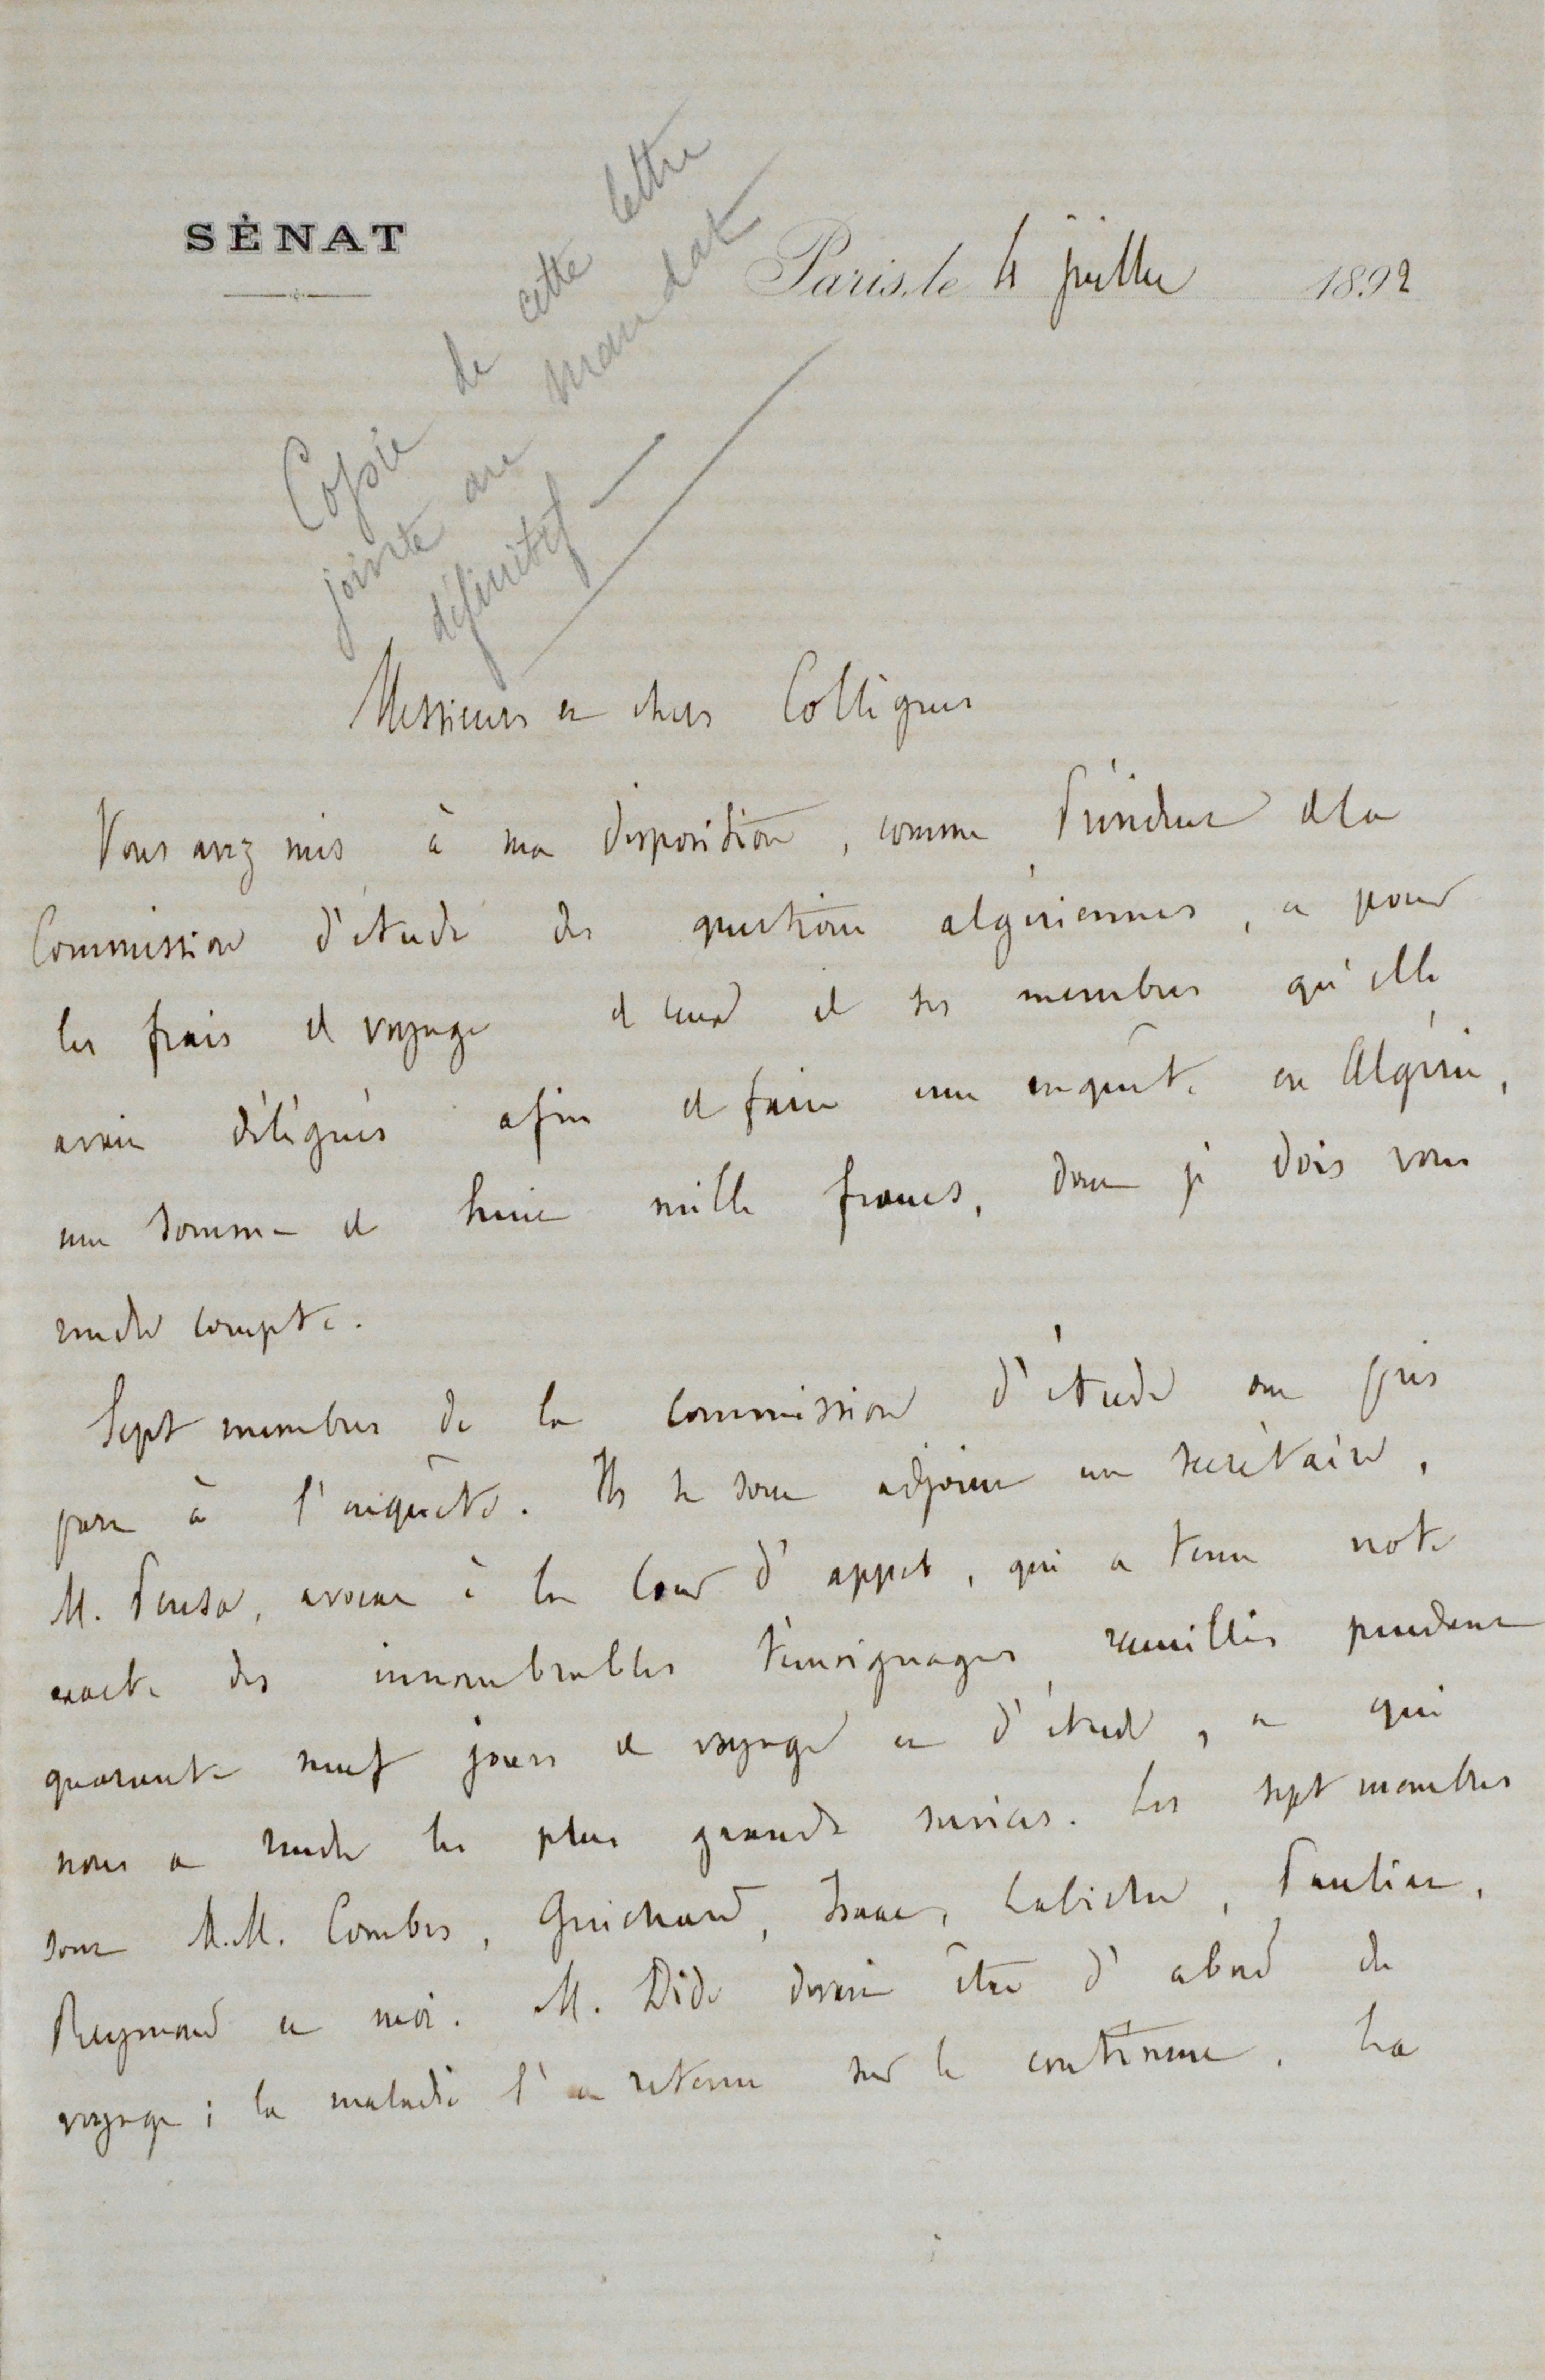 SÉNAT
Paris, le 4 juillet 1892
Copie de cette lettre
jointe au mandat
définitif
Messieurs et chers Collègues
Vous avez mis à ma disposition, comme Président de la
Commission d'étude des questions algériennes, et pour
les frais de voyage de ceux de ses membres qu'elle
avait délégués afin de faire une enquête en Algérie,
une somme de huit mille francs, dont je dois vous
rendre compte.
Sept membres de la commission d'étude ont pris
part à l'enquête. Ils se sont adjoint un secrétaire,
M. Pensa, avocat à la Cour d'appel, qui a tenu note
exacte des innombrables témoignages recueillis pendant
quarante neuf jours de voyage et d'étude, et qui
nous a rendu les plus grands services. Les sept membres
sont M.M. Combes, Guichard, Isaac, Labiche, Pauliat,
Reymond et moi. M. Dide devait être d'abord du
voyage ; la maladie l'a retenu sur le continent. La